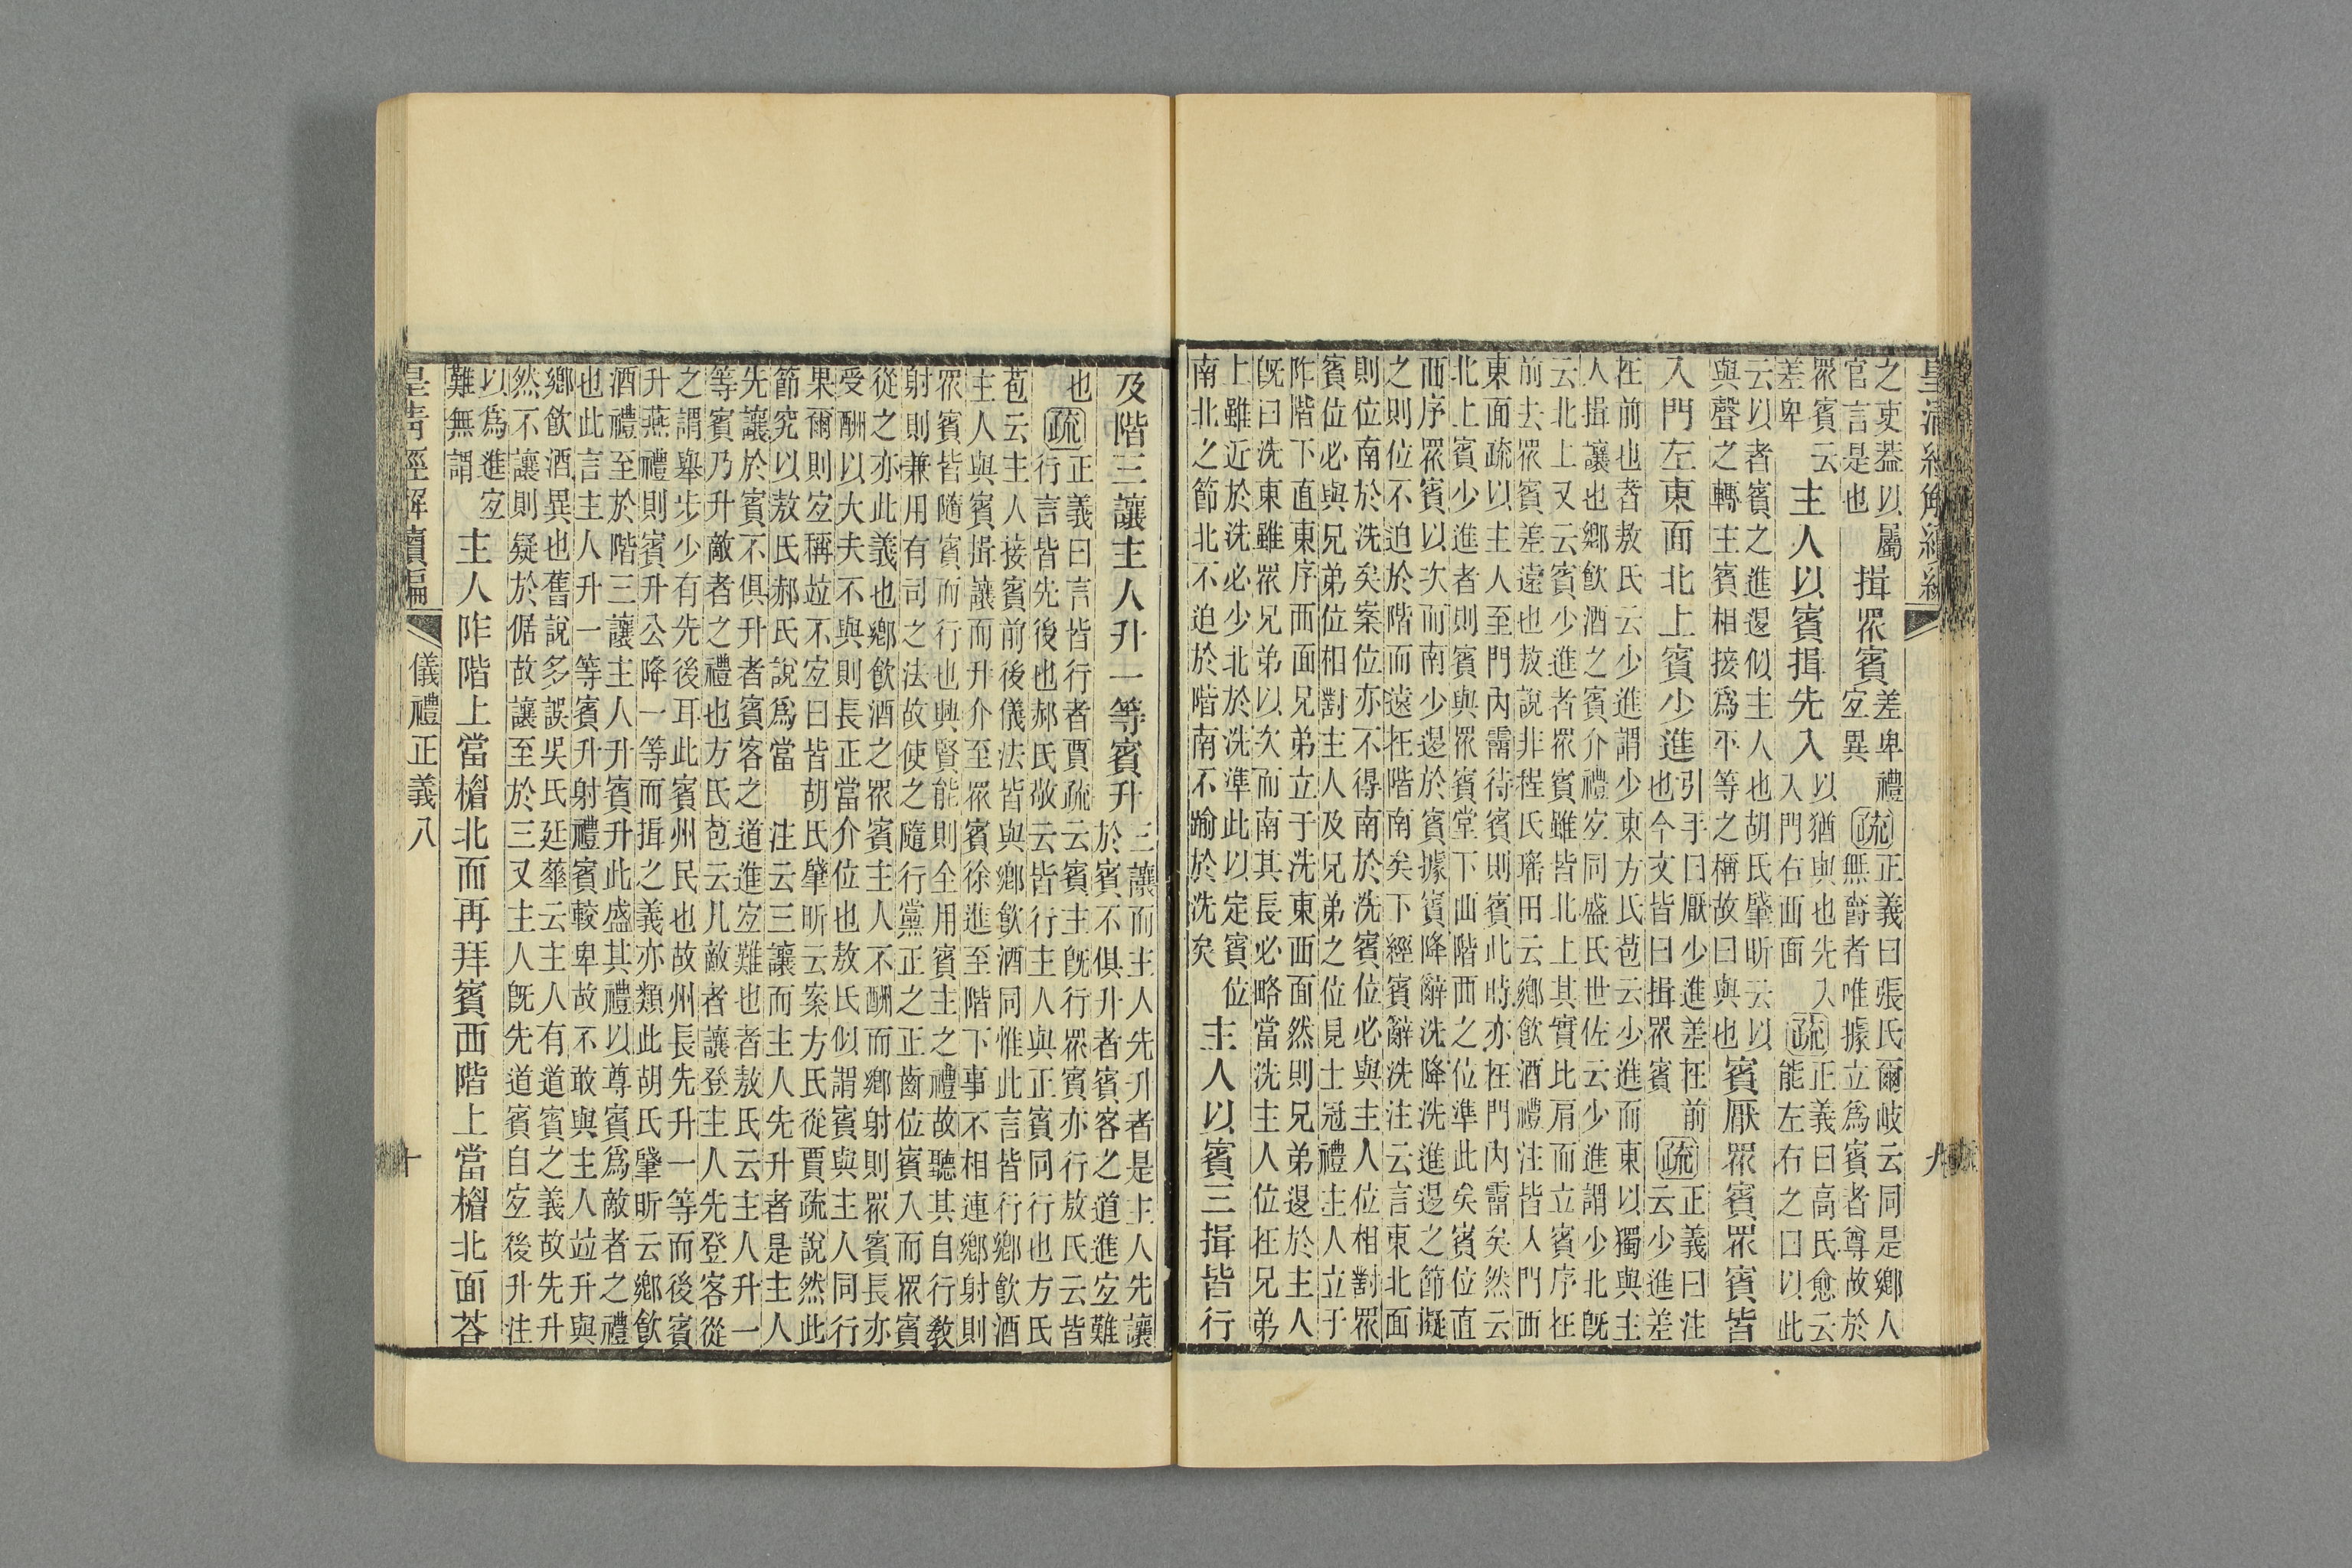 皇清經解續編
九
之吏葢以屬
官言是也
揖眾賓
差卑禮
宐異
疏
正義曰張氏爾岐云同是鄉人
無爵者唯據立爲賓者尊故於
眾賓云
差卑
主人以賓揖先入
以猶與也先入
入門右西面
疏
正義曰高氏愈云
能左右之曰以此
云以者賓之進退似主人也胡氏肇昕云以
與聲之轉主賓相接爲平等之稱故曰與也
賓厭眾賓眾賓皆
入門左東面北上賓少進
引手曰厭少進差在前
也今文皆曰揖眾賓
疏
正義曰注
云少進差
在前也者敖氏云少進謂少東方氏苞云少進而東以獨與主
人揖讓也鄉飮酒之賓介禮宐同盛氏世佐云少進謂少北旣
云北上又云賓少進者眾賓雖皆北上其實比肩而立賓序在
前去眾賓差遠也敖說非程氏瑤田云鄉飮酒禮注皆入門西
東面疏以主人至門內霤待賓則賓此時亦在門內霤矣然云
北上賓少進者則賓與眾賓堂下西階西之位準此矣賓位直
西序眾賓以次而南少退於賓據賓降辭洗降洗進退之節擬
之則位不迫於階而遠在階南矣下經賓辭洗注云言東北面
則位南於洗矣案位亦不得南於洗賓位必與主人位相對眾
賓位必與兄弟位相對主人及兄弟之位見士冠禮主人立于
阼階下直東序西面兄弟立于洗東西面然則兄弟退於主人
旣曰洗東雖眾兄弟以次而南其長必略當洗主人位在兄弟
上雖近於洗必少北於洗準此以定賓位
南北之節北不迫於階南不踰於洗矣
主人以賓三揖皆行
及階三讓主人升一等賓升
三讓而主人先升者是主人先讓
於賓不俱升者賓客之道進宐難
也
疏
正義曰言皆行者賈疏云賓主旣行眾賓亦行敖氏云皆
行言皆先後也郝氏敬云皆行主人與正賓同行也方氏
苞云主人接賓前後儀法皆與鄉飮酒同惟此言皆行鄉飮酒
主人與賓揖讓而升介至眾賓徐進至階下事不相連鄉射則
眾賓皆隨賓而行也興賢能則全用賓主之禮故聽其自行敎
射則兼用有司之法故使之隨行黨正之正齒位賓入而眾賓
從之亦此義也鄉飮酒之眾賓主人不酬而鄉射則眾賓長亦
受酬以大夫不與則長正當介位也敖氏似謂賓與主人同行
果爾則宐稱竝不宐曰皆胡氏肇昕云案方氏從賈疏說然此
節究以敖氏郝氏說爲當
注云三讓而主人先升者是主人
先讓於賓不俱升者賓客之道進宐難也者敖氏云主人升一
等賓乃升敵者之禮也方氏苞云凡敵者讓登主人先登客從
之謂舉步少有先後耳此賓州民也故州長先升一等而後賓
升燕禮則賓升公降一等而揖之義亦類此胡氏肇昕云鄉飮
酒禮至於階三讓主人升賓升此盛其禮以尊賓爲敵者之禮
也此言主人升一等賓升射禮賓較卑故不敢與主人竝升與
鄉飮酒異也舊說多誤吳氏廷華云主人有道賓之義故先升
然不讓則疑於倨故讓至於三又主人旣先道賓自宐後升注
以爲進宐
難無謂
主人阼階上當楣北面再拜賓西階上當楣北面荅
皇淸經解續編
儀禮正義八
十